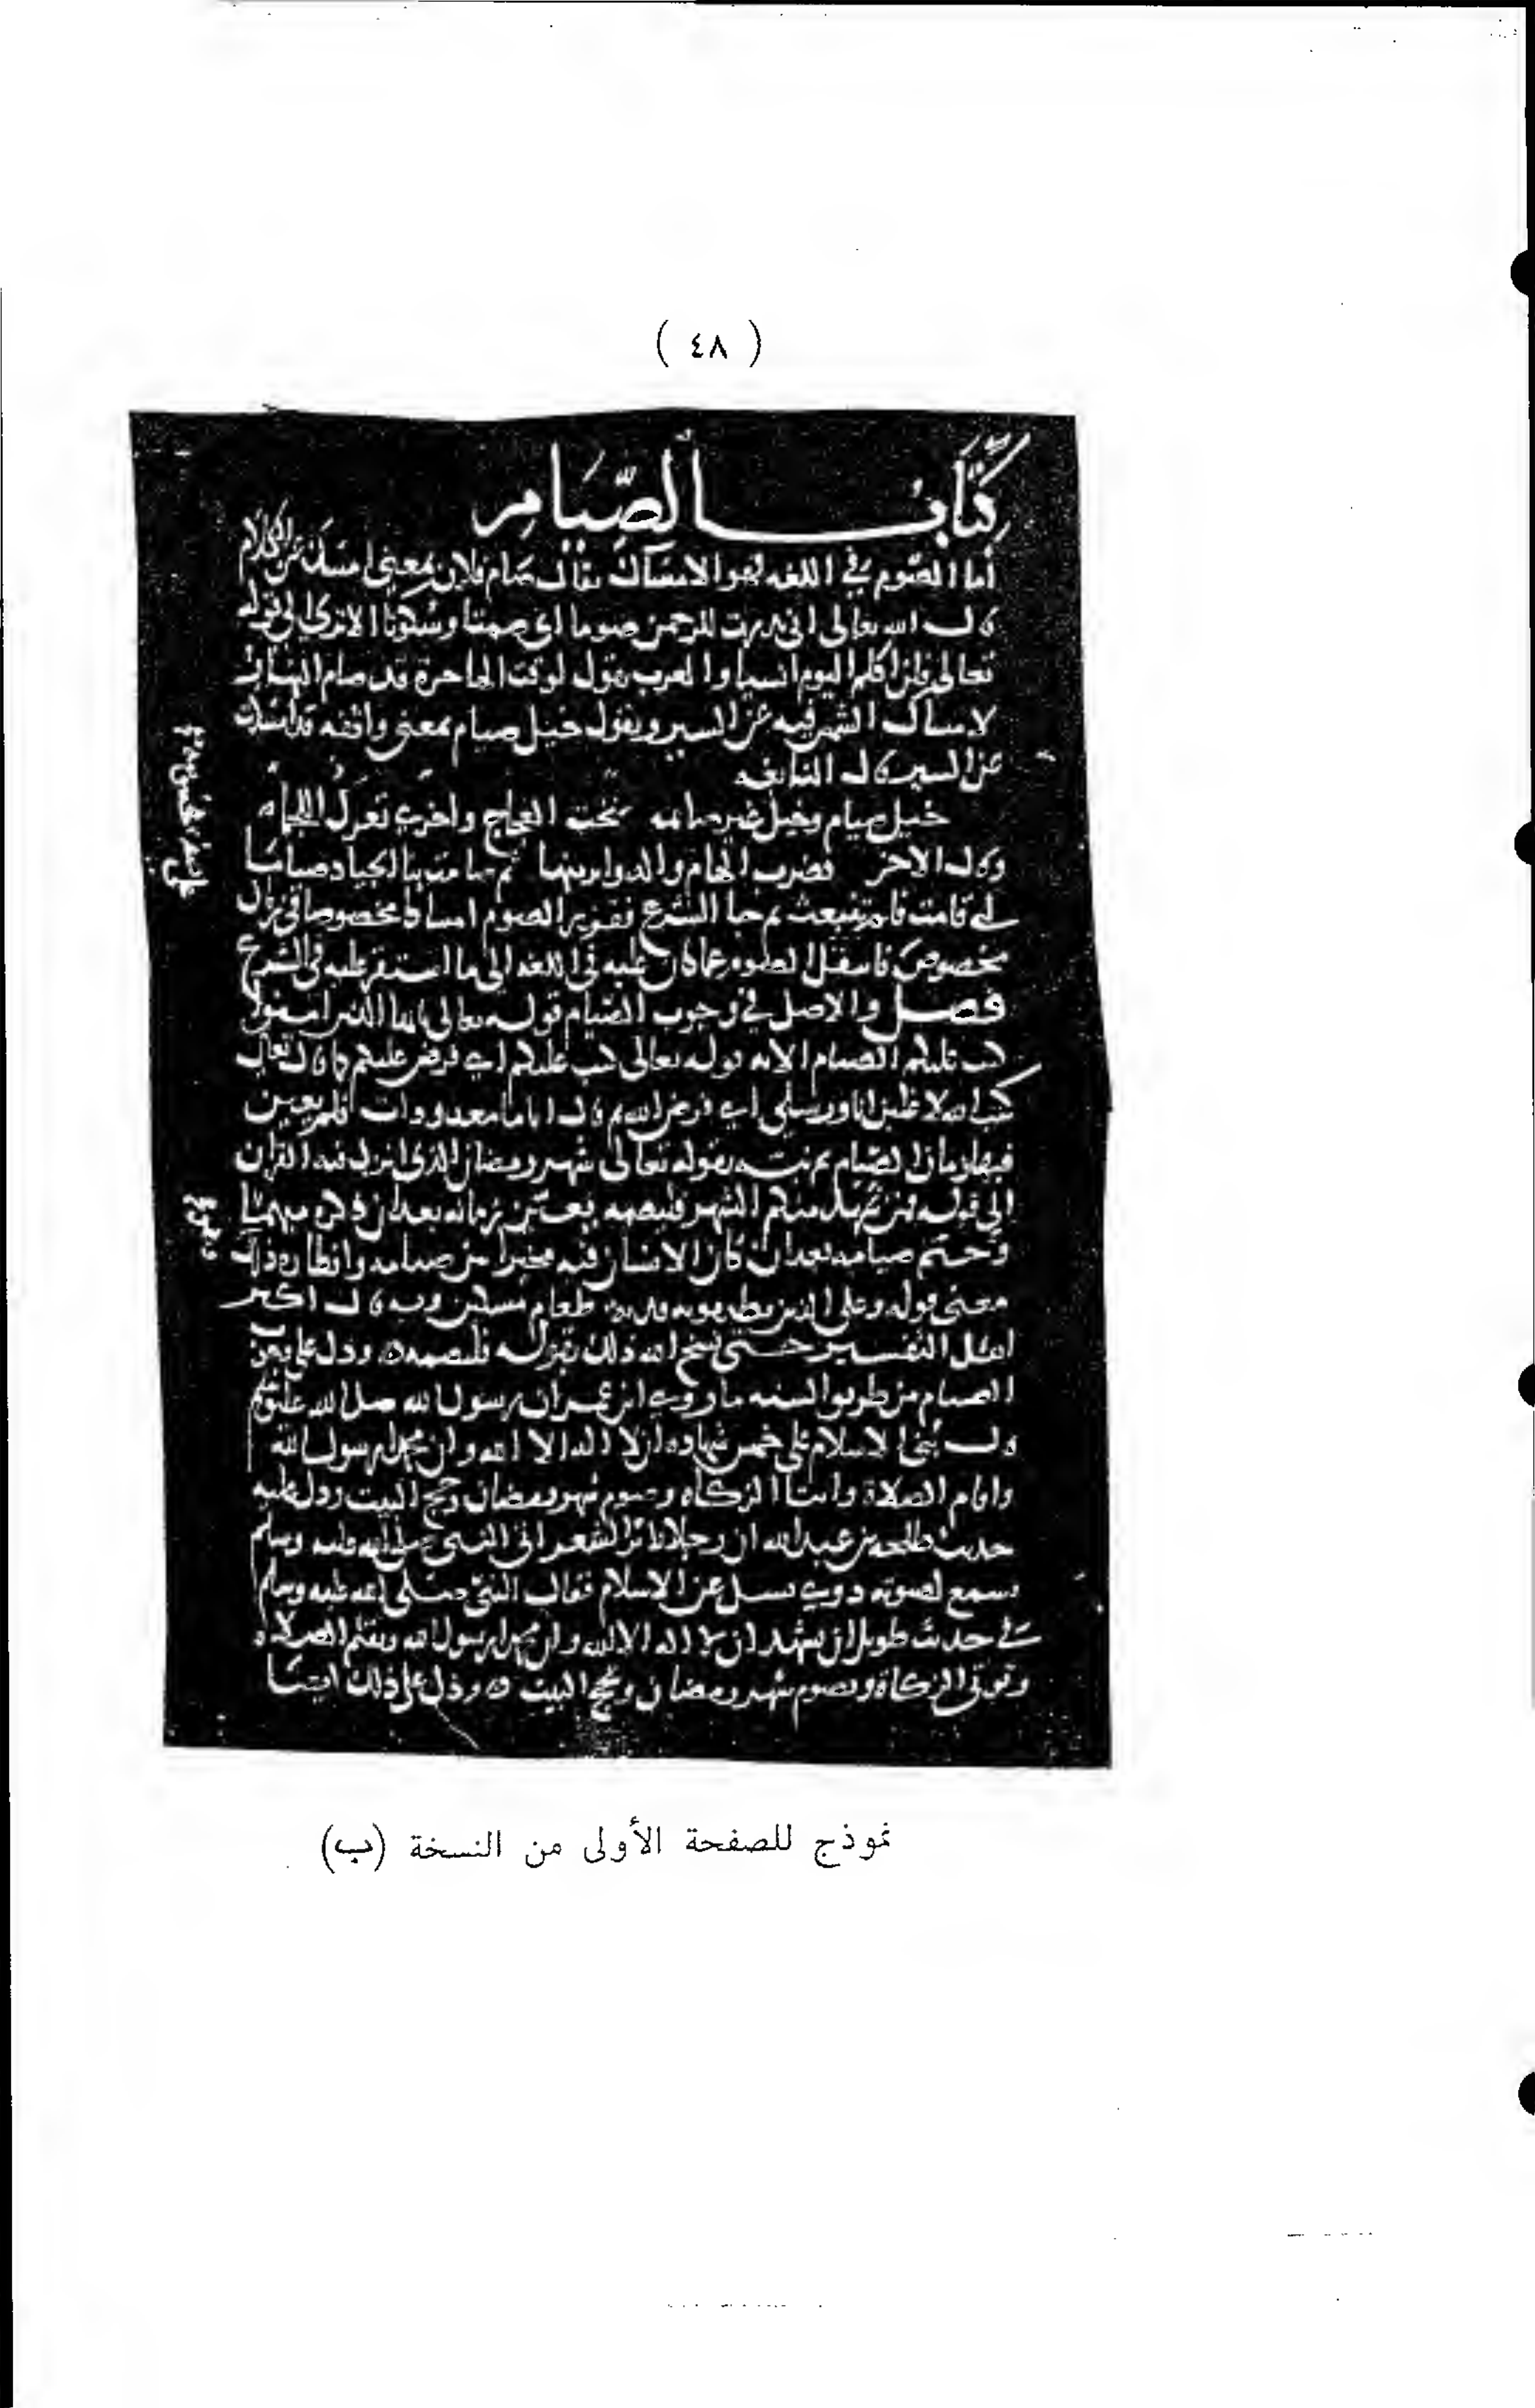 ( ٤٨ )
كِتَابُ الصِّيَامِ
أما الصوم في اللغه فهو الامساك يقال صام فلان بمعنى امسك عن الكلام
قال الله تعالى انى نذرت للرحمن صوما اى صمتا وسكوتا الا ترى الى قوله
تعالى فلن اكلم اليوم انسيا والعرب تقول لوقت الهاجرة قد صام النهار
لامساك الشمس فيه عن السير وتقول خيل صيام بمعنى واقفه قد امسكت
عن السير قال النابغه
خيل صيام وخيل غير صائمه تحت العجاج واخرى تعرك اللجما
وقال الاخر
ثم جا الشرع فقرر الصوم امساكا مخصوصا في زمان
مخصوص فانتقل الصوم عما كان عليه في اللغه الى ما استقر عليه في الشرع
فصل والاصل في وجوب الصيام قوله تعالى يا ايها الذين امنوا
كتب عليكم الصيام الايه قوله تعالى كتب عليكم اي فرض عليكم كما قال تعالى
كتب الله لاغلبن انا ورسلي اي فرض الله ثم قال اياما معدودات فلم يعين
فيها زمان الصيام ثم بينه بقوله تعالى شهر رمضان الذى انزل فيه القران
الى قوله فمن شهد منكم الشهر فليصمه فعين زمانه بعد ان ذكره مبهما
وحتم صيامه بعد ان كان الانسان فيه مخيرا بين صيامه وافطاره وذلك
معنى قوله وعلى الذين يطيقونه فديه طعام مسكين وبه قال اكثر
اهل التفسير حتى نسخ الله ذلك بقوله فليصمه ودل على وجوب
الصيام من طريق السنه ما روي ابن عمر ان رسول الله صلى الله عليه وسلم
قال بُني الاسلام على خمس شهاده ان لا اله الا الله وان محمدا رسول الله
واقام الصلاة وايتا الزكاه وصوم شهر رمضان وحج البيت ودل عليه
حديث طلحه بن عبد الله ان رجلا ثائر الشعر اتى النبي صلى الله عليه وسلم
يسمع لصوته دوي يسل عن الاسلام فقال النبي صلى الله عليه وسلم
في حديث طويل ان تشهد ان لا اله الا الله وان محمدا رسول الله وتقيم الصلاه
وتوتى الزكاة وتصوم شهر رمضان وتحج البيت ودل على ذلك ايضا
نموذج للصفحة الأولى من النسخة (ب)